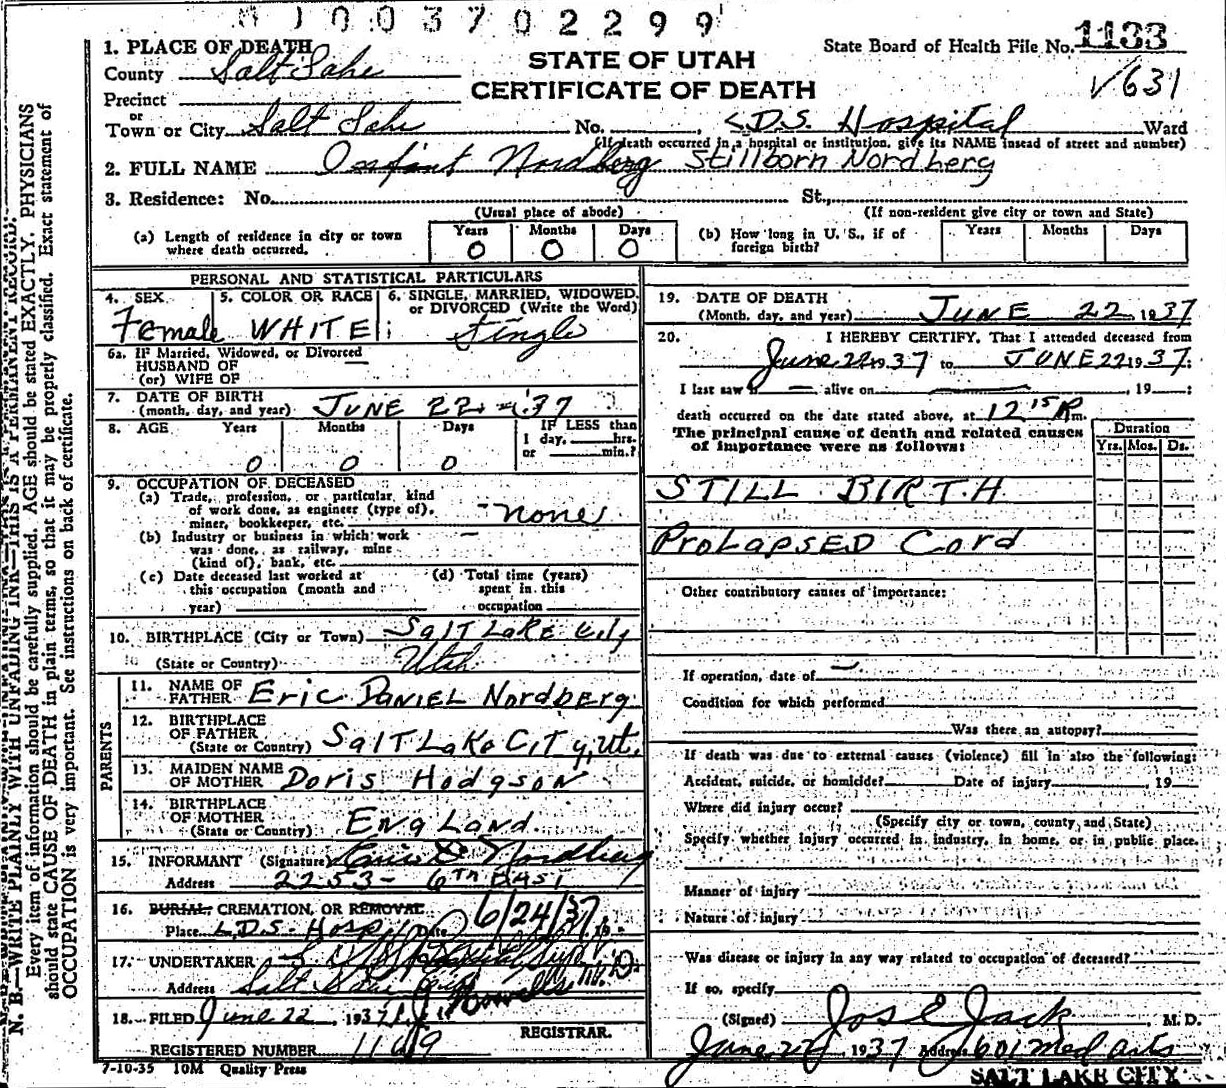 003702299
1. PLACE OF DEATH
County Salt Lake
Precinct
or
Town or City Salt Lake No. , LDS. Hospital Ward
(If death occurred in a hospital or institution, give its NAME insead of street and number)
STATE OF UTAH
CERTIFICATE OF DEATH
State Board of Health File No. 1133
√631
2. FULL NAME Infant Nordberg Stillborn Nordberg
3. Residence: No. St.,
(Usual place of abode) (If non-resident give city or town and State)
(a) Length of residence in city or town where death occurred. Years 0 Months 0 Days 0
(b) How long in U. S., if of foreign birth? Years Months Days
PERSONAL AND STATISTICAL PARTICULARS
4. SEX Female
5. COLOR OR RACE WHITE
6. SINGLE, MARRIED, WIDOWED, or DIVORCED (Write the Word) Single
6a. IF Married, Widowed, or Divorced —
HUSBAND OF
(or) WIFE OF
7. DATE OF BIRTH
(month, day, and year) JUNE 22 - 37
8. AGE Years 0 Months 0 Days 0
IF LESS than
1 day, hrs.
or min.?
9. OCCUPATION OF DECEASED
(a) Trade, profession, or particular kind
of work done, as engineer (type of),
miner, bookkeeper, etc. - none
(b) Industry or business in which work —
was done, as railway, mine
(kind of), bank, etc.
(c) Date deceased last worked at
this occupation (month and
year)
(d) Total time (years)
spent in this
occupation
10. BIRTHPLACE (City or Town) Salt Lake City
(State or Country) Utah
PARENTS
11. NAME OF
FATHER Eric Daniel Nordberg
12. BIRTHPLACE
OF FATHER
(State or Country) Salt Lake City, Ut.
13. MAIDEN NAME
OF MOTHER Doris Hodgson
14. BIRTHPLACE
OF MOTHER
(State or Country) England
15. INFORMANT (Signature) Eric D Nordberg
Address 2253 - 6TH EAST
16. BURIAL, CREMATION, OR REMOVAL
Place L.D.S. Hosp Date 6/24/37 19
17. UNDERTAKER
Address Salt Lake City
M.D.
18. FILED June 22, 1937
REGISTRAR.
REGISTERED NUMBER 1169
7-10-35 10M Quality Press
19. DATE OF DEATH
(Month, day, and year) JUNE 22 1937
20. I HEREBY CERTIFY, That I attended deceased from
June 22 1937 to JUNE 22 1937
I last saw h — alive on , 19 :
death occurred on the date stated above, at 12 15 P m.
The principal cause of death and related causes
of importance were as follows:
Duration
Yrs. Mos. Ds.
STILL BIRTH
PROLAPSED CORD
Other contributory causes of importance:
If operation, date of —
Condition for which performed
Was there an autopsy?
If death was due to external causes (violence) fill in also the following:
Accident, suicide, or homicide? Date of injury , 19
Where did injury occur?
(Specify city or town, county, and State)
Specify whether injury occurred in industry, in home, or in public place.
Manner of injury
Nature of injury
Was disease or injury in any way related to occupation of deceased?
If so, specify
(Signed) Jos E Jack M. D.
June 22, 1937 Address 601 Med Arts
SALT LAKE CITY
N. B.—WRITE PLAINLY WITH UNFADING INK—THIS IS A PERMANENT RECORD.
Every item of information should be carefully supplied. AGE should be stated EXACTLY. PHYSICIANS
should state CAUSE OF DEATH in plain terms, so that it may be properly classified. Exact statement of
OCCUPATION is very important. See instructions on back of certificate.